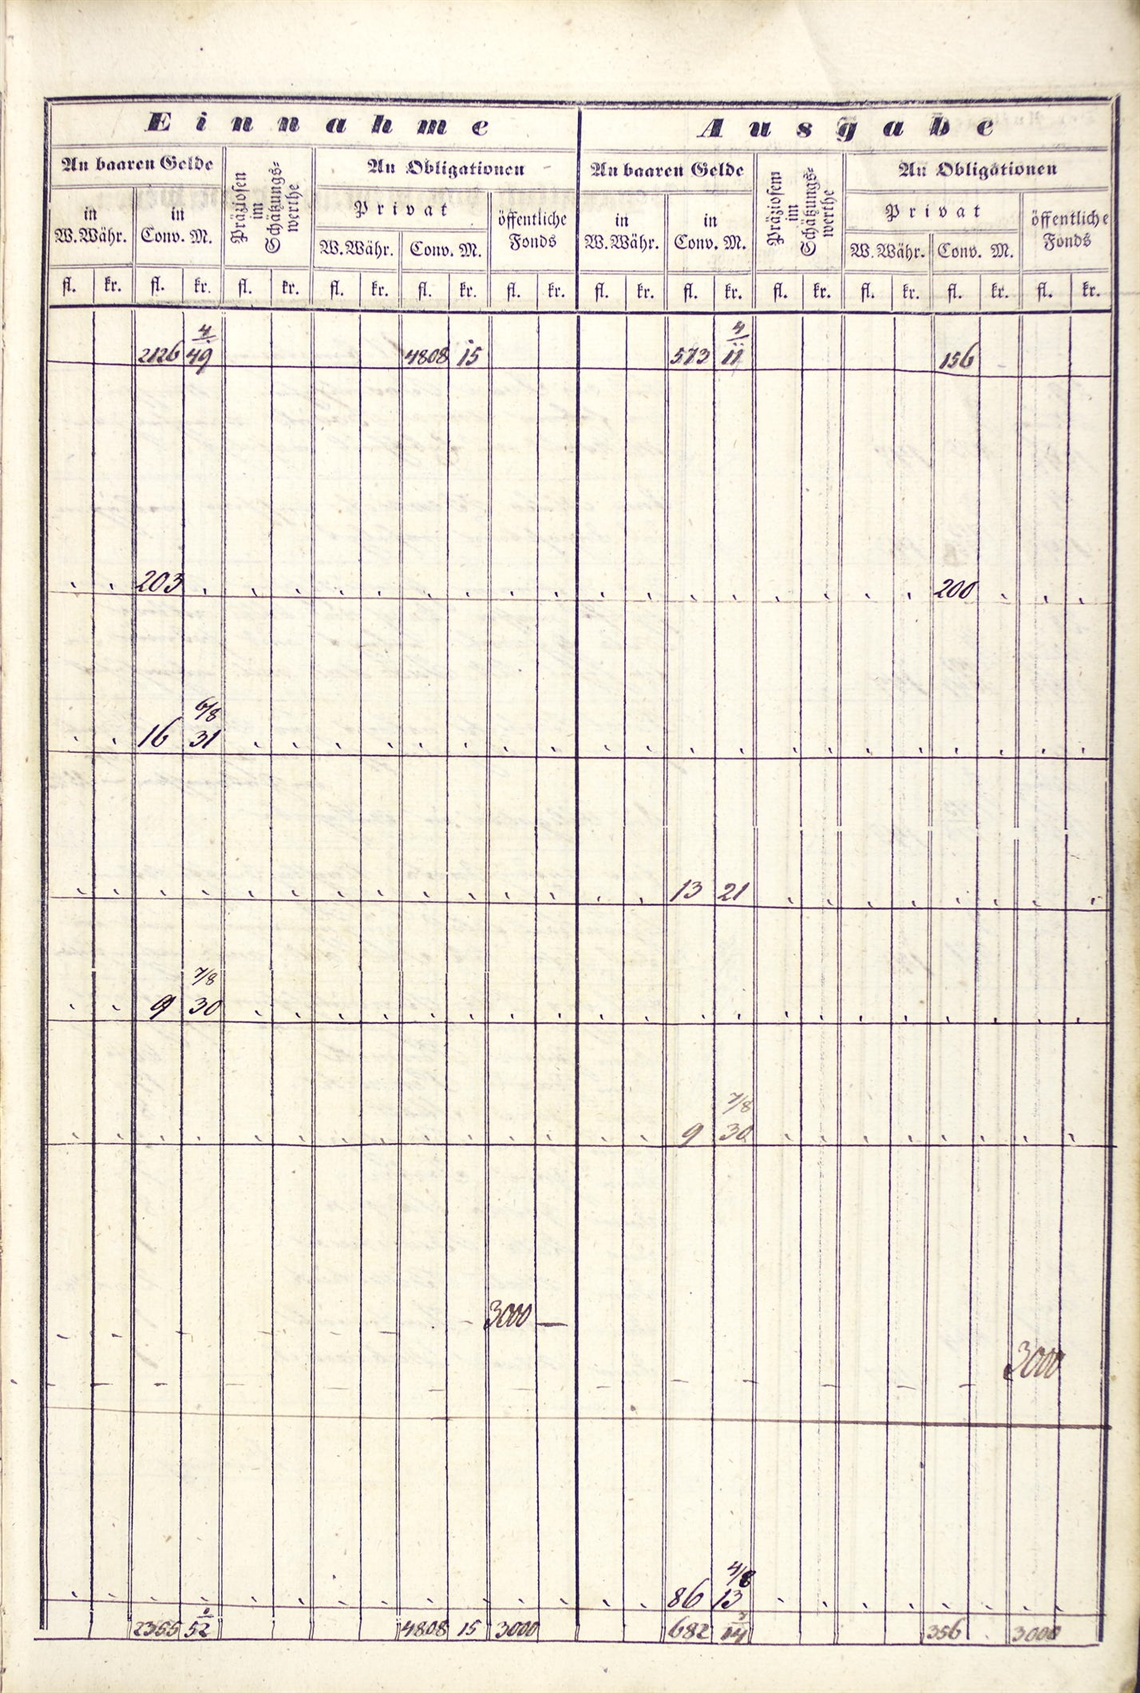 Einnahme Ausgabe
An baaren Gelde Präziosen im Schätzungs-werthe An Obligationen An baaren Gelde Präziosem im Schätzungs-werthe An Obligationen
Privat öffentliche Fonds Privat öffentliche Fonds
in W. Währ. in Conv. M. W. Währ. Conv. M. in W. Währ. in Conv. M. W. Währ. Conv. M.
fl. kr. fl. kr. fl. kr. fl. kr. fl. kr. fl. kr. fl. kr. fl. kr. fl. kr. fl. kr. fl. kr. fl. kr.
4 4
2126 49 4808 15 573 11 156 -
203 200
6/8
16 31
13 21
7/8
9 30
7/8
9 30
3000 —
3000
4/8
86 13
2355 52 4808 15 3000 682 14 356 3000